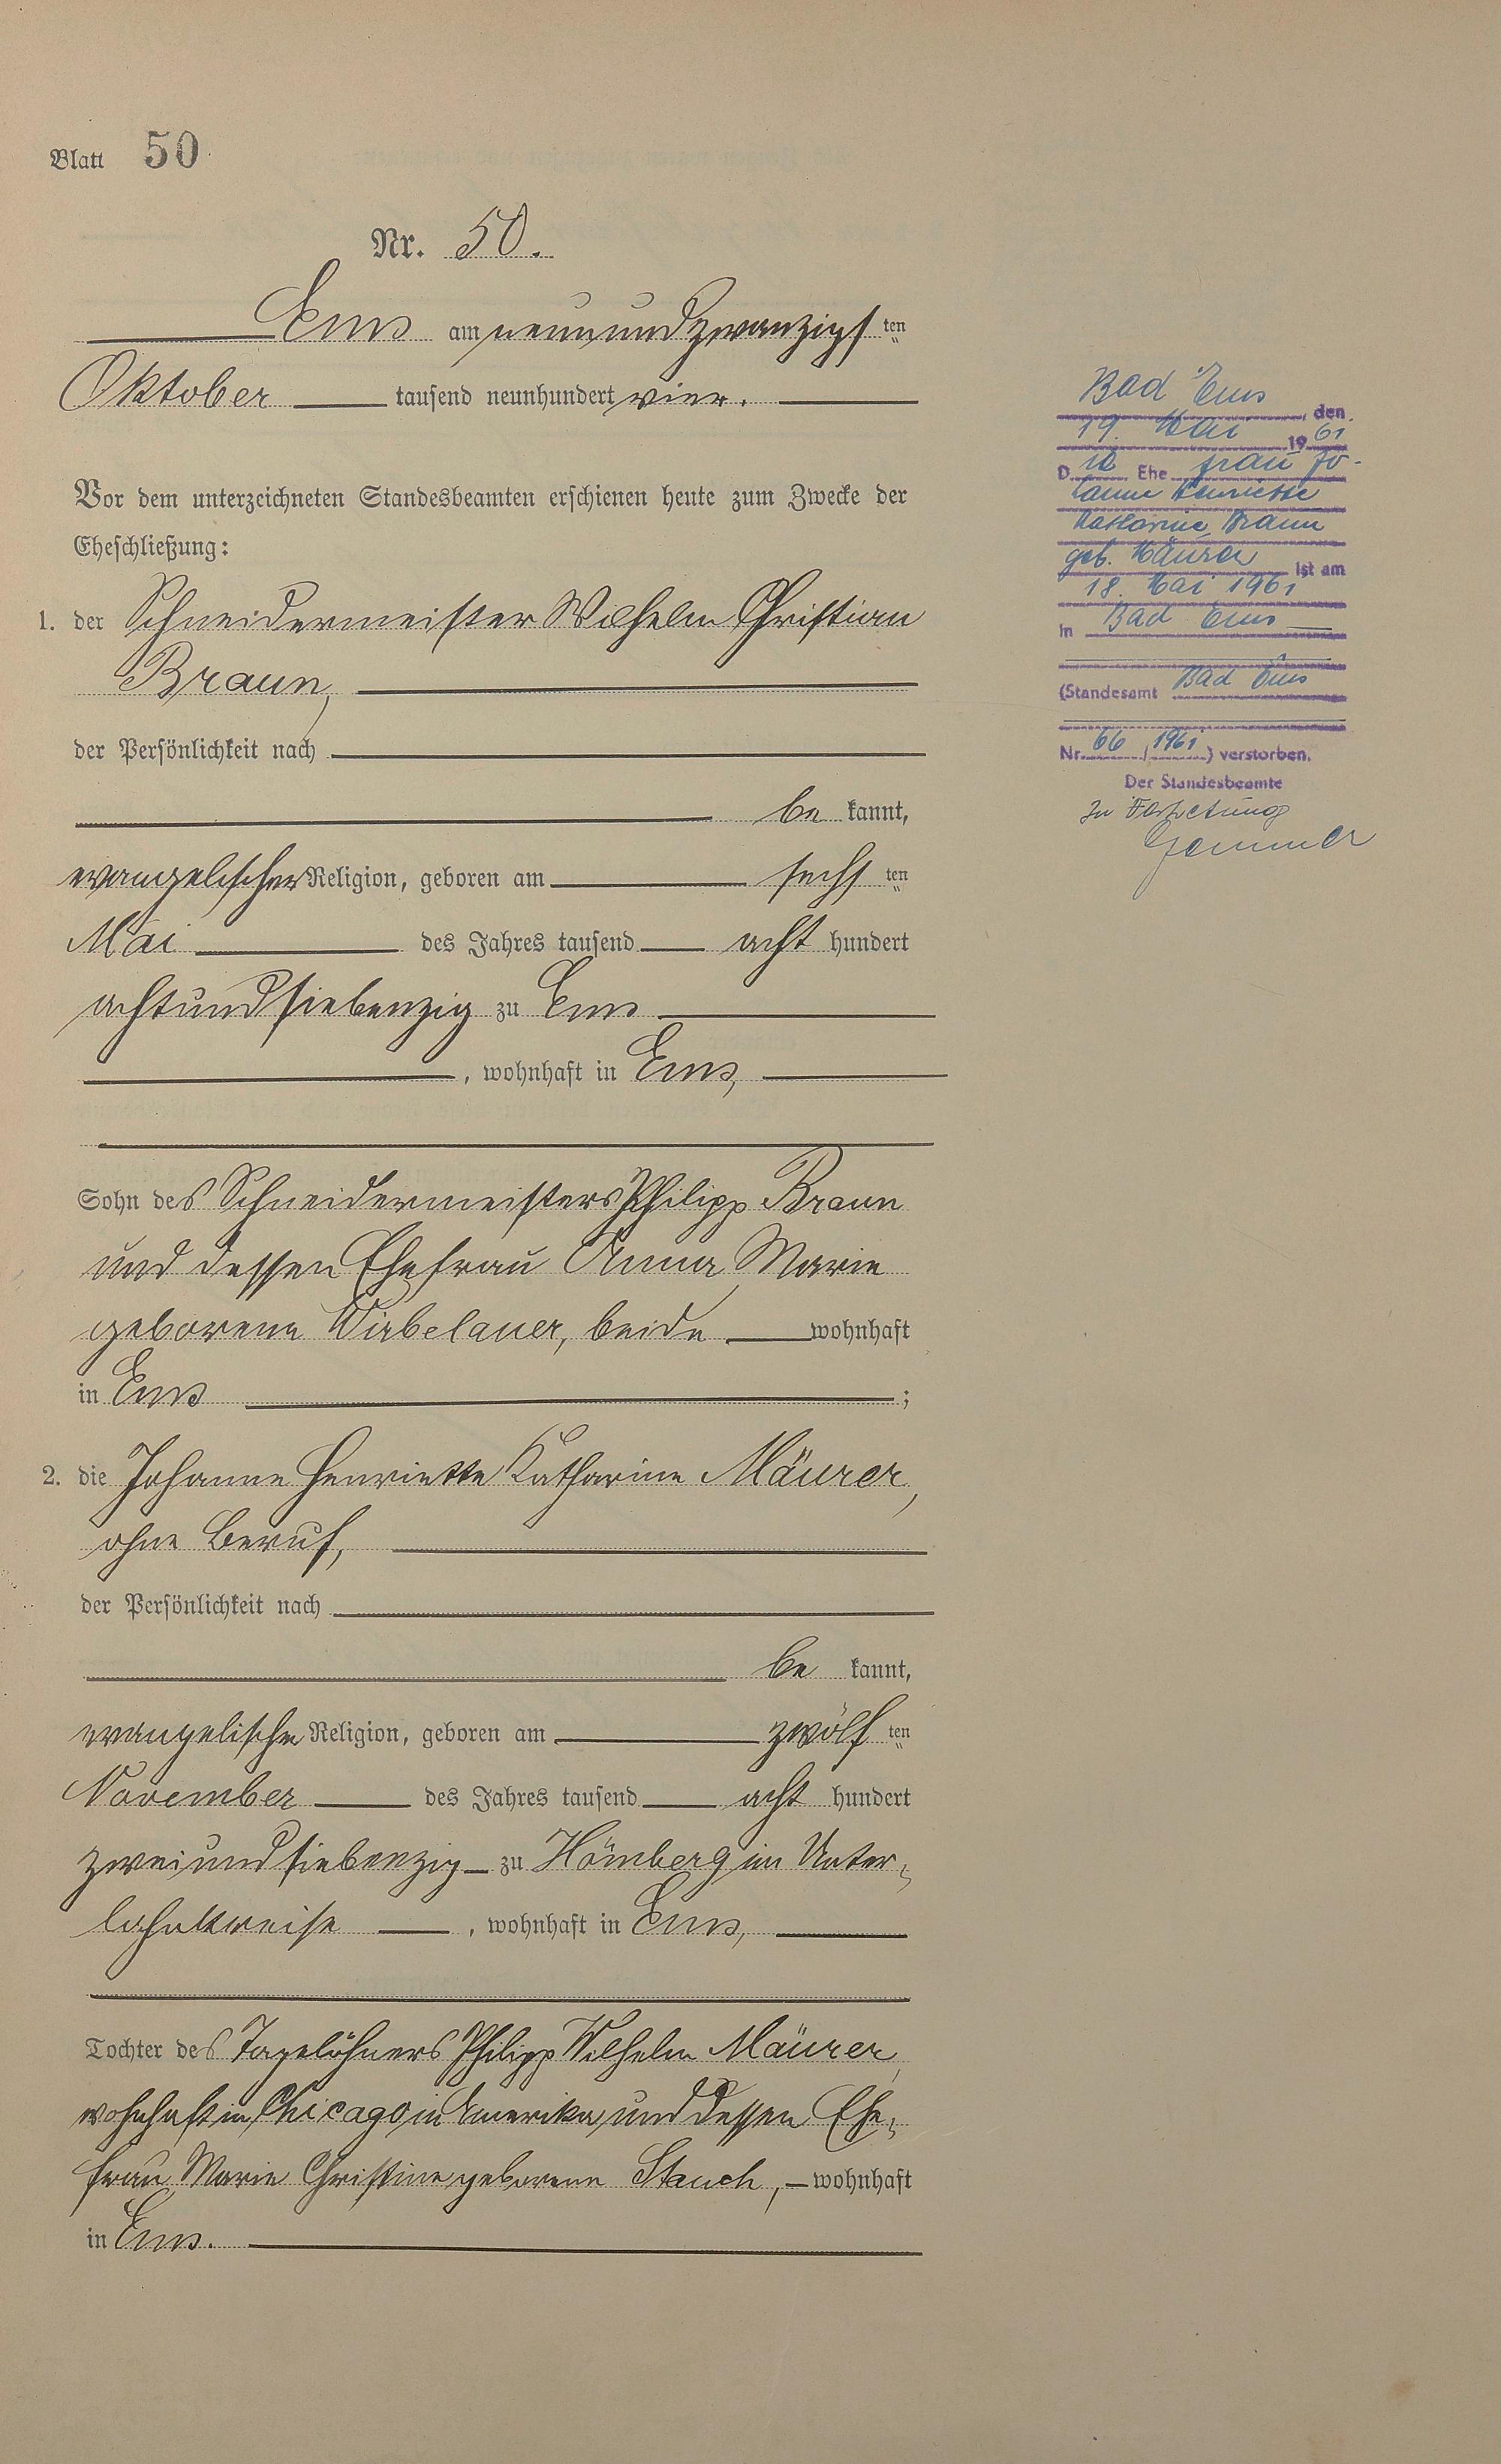 Blatt 50
Nr. 50.
Ems am neunundzwanzigsten
Oktober tausend neunhundert vier.
Vor dem unterzeichneten Standesbeamten erschienen heute zum Zwecke der
Eheschließung:
1. der Schneidermeister Wilhelm Christian
Braun,
der Persönlichkeit nach
be kannt,
evangelischer Religion, geboren am sechsten
Mai des Jahres tausend acht hundert
achtundsiebenzig zu Ems
, wohnhaft in Ems,
Sohn des Schneidermeisters Philipp Braun
und dessen Ehefrau Anna Marie
geborene Wirbelauer, beide wohnhaft
in Ems ;
2. die Johanne Henriette Katharine Mäurer,
ohne Beruf,
der Persönlichkeit nach
be kannt,
evangelischer Religion, geboren am zwölften
November des Jahres tausend acht hundert
zweiundsiebenzig zu Hömberg im Unter-
lahnkreise , wohnhaft in Ems,
Tochter des Tagelöhners Philipp Wilhelm Mäurer,
wohnhaft in Chicago in Amerika, und dessen Ehe-
frau Marie Christine geborene Stauch, wohnhaft
in Ems.
Bad Ems, den
19. Mai 1961
Die Ehefrau Jo-
hanne Henriette
Katharine Braun
geb. Mäurer ist am
18. Mai 1961
in Bad Ems
(Standesamt Bad Ems
Nr. 66 / 1961) verstorben.
Der Standesbeamte
In Vertretung